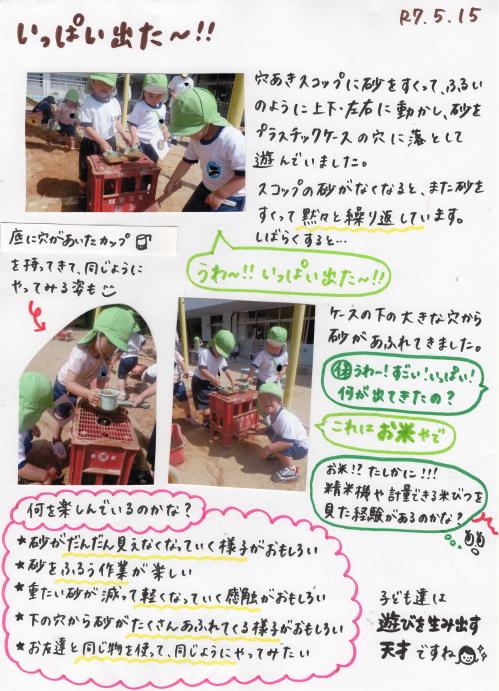 R7.5.15
いっぱい出た〜!!
穴あきスコップに砂をすくって、ふるい
のように上下・左右に動かし、砂を
プラスチックケースの穴に落として
遊んでいました。
スコップの砂がなくなると、また砂を
すくって黙々と繰り返しています。
しばらくすると…
底に穴があいたカップ
を持ってきて、同じように
やってみる姿も
うわ〜!! いっぱい出た〜!!
ケースの下の大きな穴から
砂があふれてきました。
うわー!すごい!いっぱい!
何が出てきたの?
これはお米やで
お米!?たしかに!!!
精米機や計量できる米びつを
見た経験があるのかな?
何を楽しんでいるのかな?
★砂がだんだん見えなくなっていく様子がおもしろい
★砂をふるう作業が楽しい
★重たい砂が減って軽くなっていく感触がおもしろい
★下の穴から砂がたくさんあふれてくる様子がおもしろい
★お友達と同じ物を使って、同じようにやってみたい
子ども達は
遊びを生み出す
天才ですね